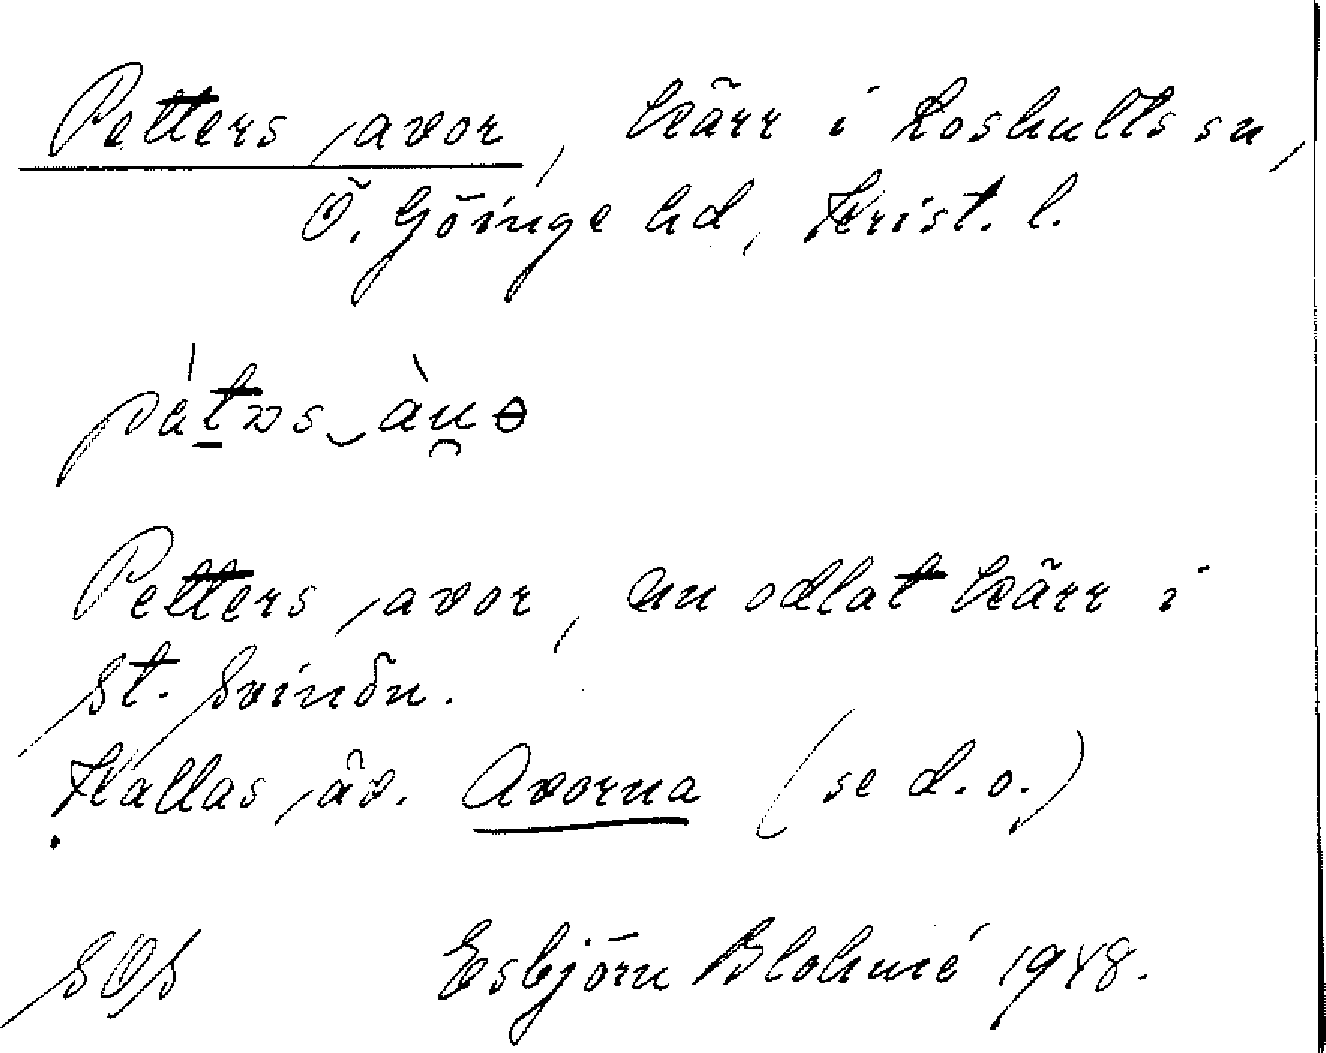 Petters avor, kärr i Loshults sn,
Ö. Göinge hd, Krist. l.
Petters avor, nu odlat kärr i
St. Svinön.
Kallas äv. Avorna (se d.o.)
SOS Esbjörn Blohmé 1948.